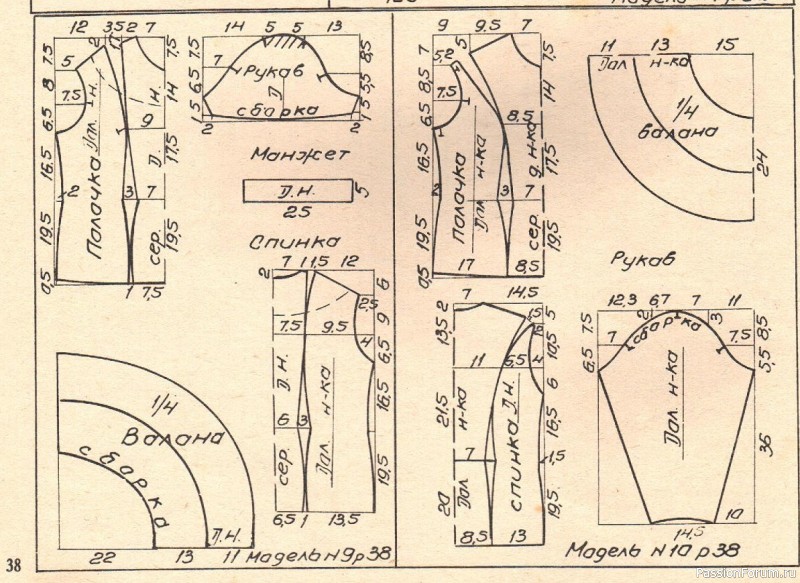 12 3,5 2 7
2 1
7,5 8 6,5 16,5 19,5 0,5
5
7,5
Палочка
Дл. н.
9
2
3 7
1 7,5
Д. н.
сер.
7,5 14 17,5 19,5
14 5 13
7,5 6,5 1,5
7
Рукав
Д
сборка
7,5
2 2
8,5 5,5 1,5
Манжет
Д.Н.
5
25
Спинка
7 1 1,5 12
2
6 9 6,5 16,5 19,5
2,5
7,5 9,5
4
Д.Н.
Дал. н-ка
6 3
сер.
6,5 1 13,5
1/4
Валана
сборка
Д.Н.
22 13 11
Мадель н 9 р 38
38
9 9,5 7
5
7 8,5 6,5 16,5 19,5 0,5
5,2
7,5
8,5
Палочка
Дал н-ка
2
3 7
17 8,5
д н-ка
сер.
7,5 14 17,5 19,5
11 13 15
Дал н-ка
1/4
валана
24
Рукав
14,5
2 13,5 21,5 20
5 10,5 6 16,5 19,5
11 6,5 4
н-ка
Дал
спинка Д.Н.
7
1,5
8,5 13
12,3 6,7 7 11
7,5 6,5
2 3
сборка
7 7,5
8,5 5,5 36
Дал н-ка
14,5
10
Мадель н 10 р 38
PassionForum.ru